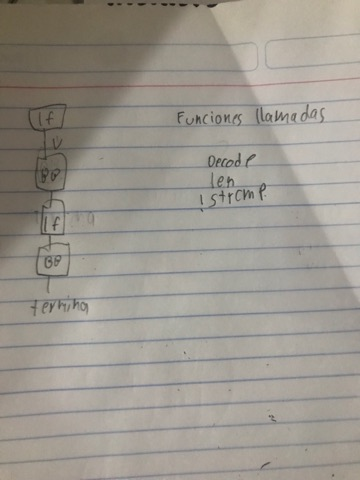 If
V
BB
If
BB
termina
Funciones llamadas
Decode
len
lstrcmp.